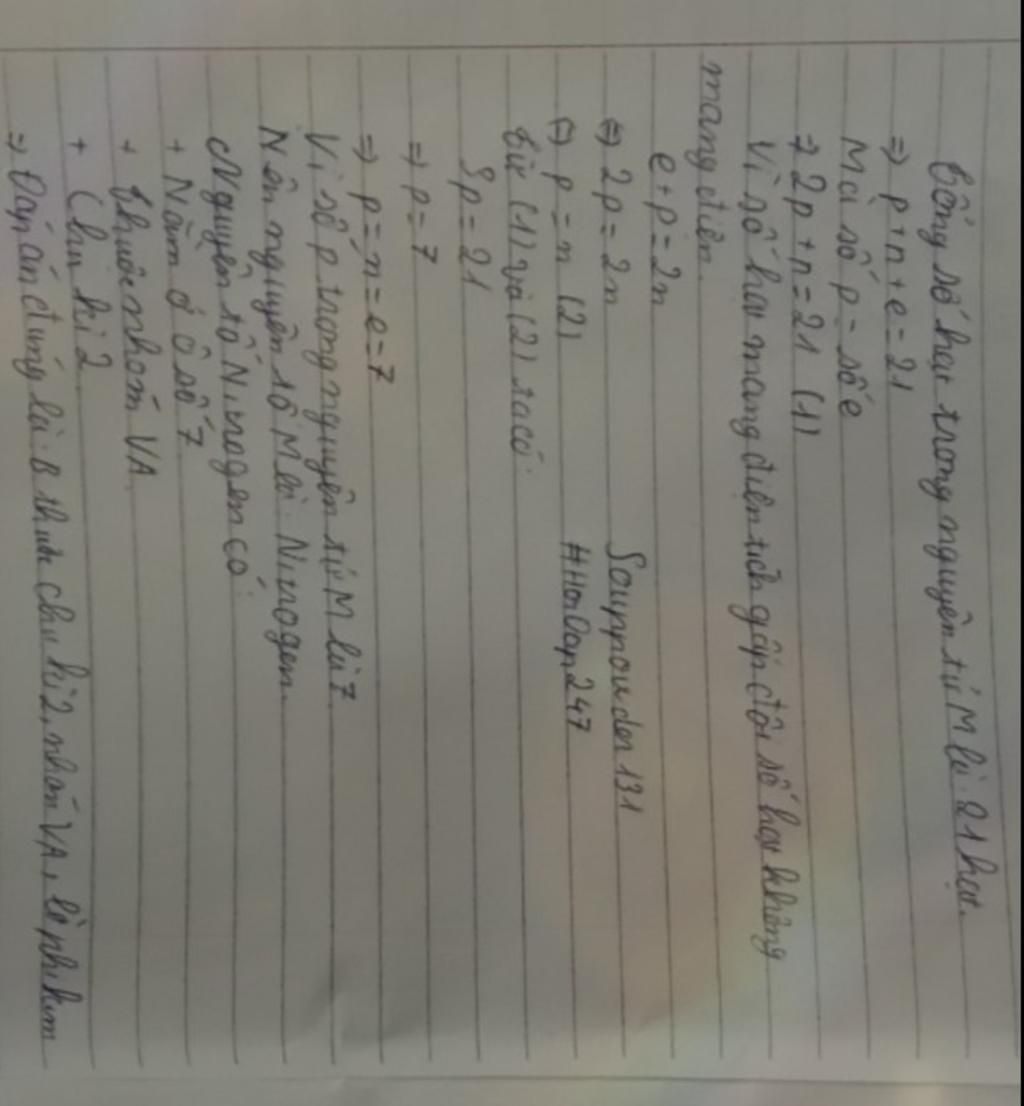 Tổng số hạt trong nguyên tử M là 21 hạt.
⇒ p+n+e=21
Mà số p = số e
⇒ 2p+n=21 (1)
Vì số hạt mang điện tích gấp đôi số hạt không
mang điện.
e+p=2n
⇔ 2p=2n
⇔ p=n (2)
Từ (1) và (2) ta có:
3p=21
⇒ p=7
⇒ p=n=e=7
Vì số p trong nguyên tử M là 7
Nên nguyên tố M là Nitrogen.
Nguyên tố Nitrogen có:
+ Nằm ở ô số 7
+ Thuộc nhóm VA
+ Chu kì 2
⇒ Đáp án đúng là B thuộc chu kì 2, nhóm VA, là phi kim
Souppowder131
#HoiDap247